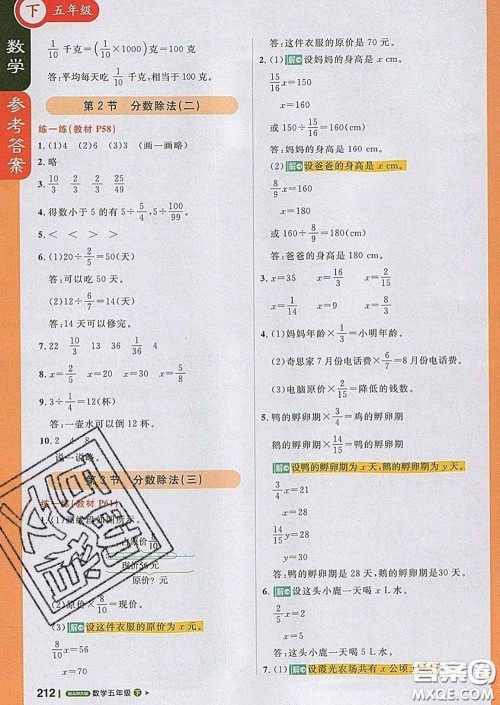 下 五年级
数学
参考答案
1/10 千克=(1/10×1000)克=100 克
答:平均每天吃 1/10 千克,相当于 100 克。
第 2 节 分数除法(二)
练一练(教材 P58)
1.(1)4 (2)6 (3) (画一画略)
2. 略
3. 10/3 2/3 25/3 25/49
4. 得数小于 5 的有 5÷5/4,5÷9/7。
5. < < > >
6.(1)20÷2/5=50(天)
答:可以吃 50 天。
(2)12÷6/7=14(天)
答:14 天可以修完。
7. 22 10/3 1/36 4
8. x=2/5 x=40 x=5/8
9. 3÷1/4=12(杯)
答:一壶水可以倒 12 杯。
10. 2 4 8
说一说略。
第 3 节 分数除法(三)
练一练(教材 P61)
现价56元
原价? 元
(2)原价×8/10=现价。
(3)解 设这件衣服的原价为 x 元。
8/10 x=56
x=70
212 数学五年级 下
答:这件衣服的原价是 70 元。
2.(1)解 设妈妈的身高是 x cm。
15/16 x=150
x=160
或 150÷15/16=160(cm)
答:妈妈的身高是 160 cm。
(2)解 设爸爸的身高是 x cm。
8/9 x=160
x=180
或 160÷8/9=180(cm)
答:爸爸的身高是 180 cm。
3. x=35 x=16/3 x=2/15
x=1/14 x=9 x=3/8
4.(1)妈妈年龄×1/3=小明年龄。
(2)奇思家 7 月份电话费×6/7=8 月份电话费。
(3)电脑原价×2/15=降低的钱数。
5. 鸭的孵卵期×3/4=鸡的孵卵期
鹅的孵卵期×14/15=鸭的孵卵期
解 设鸭的孵卵期为 x 天,鹅的孵卵期为 y 天。
3/4 x=21
x=28
14/15 y=28
y=30
答:鸭的孵卵期是 28 天,鹅的孵卵期是 30 天。
6. 解 设这头小鹿一天喝水 x L。
3/4 x=6
x=8
答:这头小鹿一天喝水 8 L。
7.(1)解 设霞光农场共有 x 公顷
答案圈
MXQE.COM